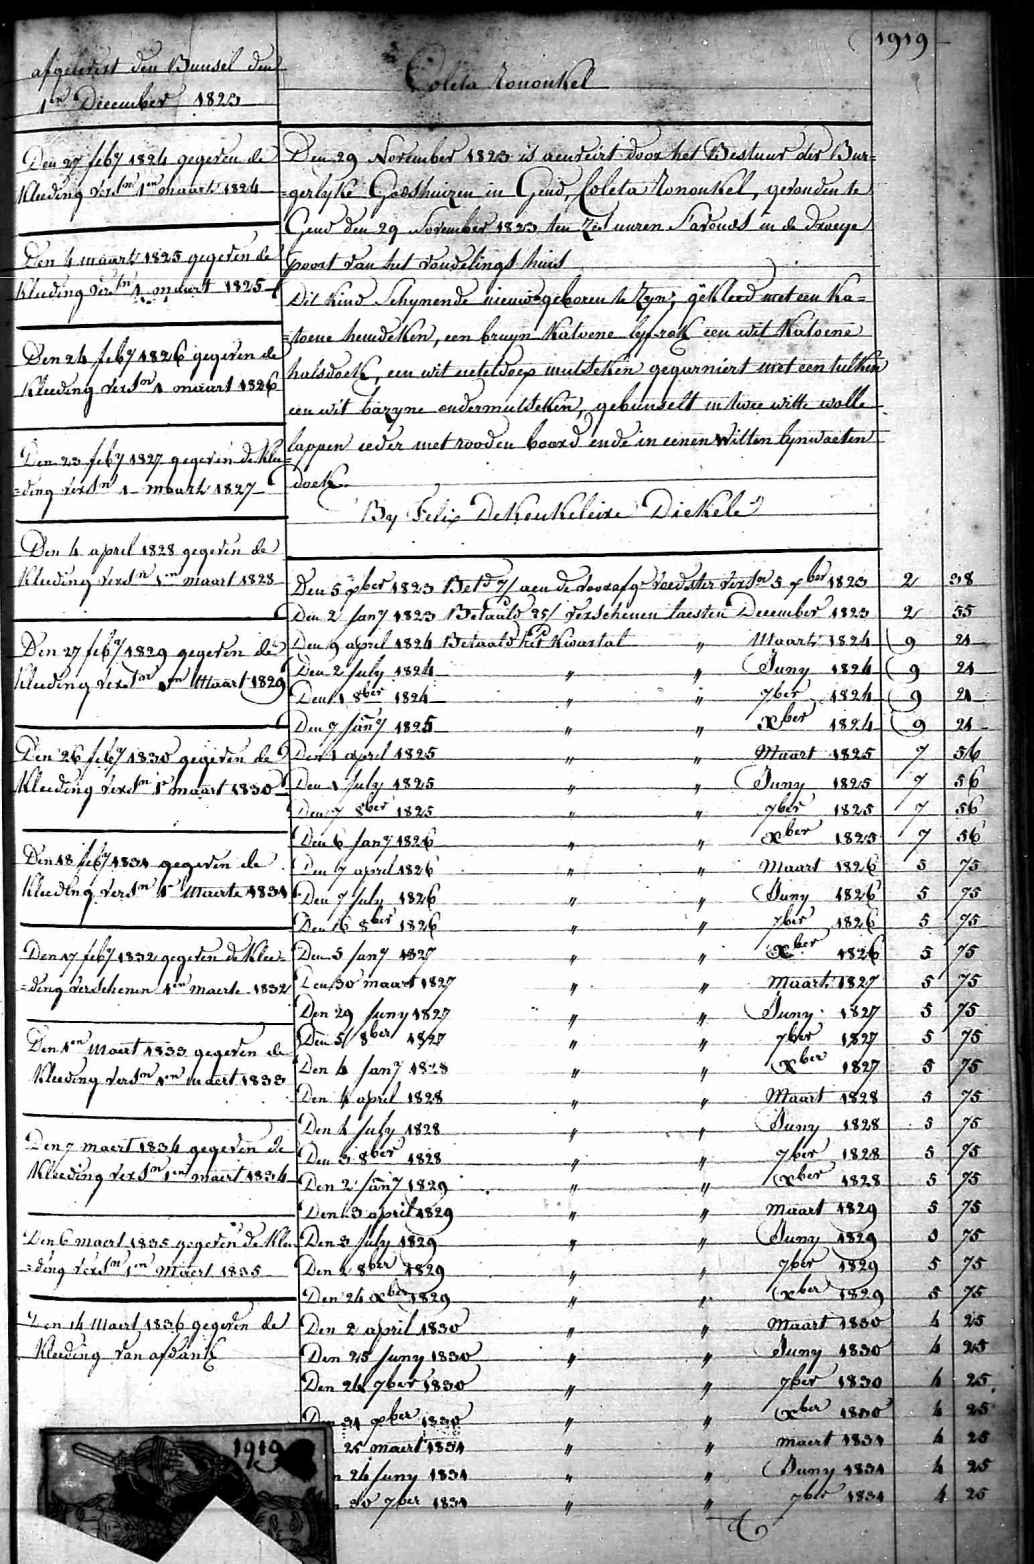 1919
afgelevert den Bunsel den
1en December 1823
Coleta Rononkel
Den 27 feby 1824 gegeven de
Kleeding versn 1en maart 1824
Den 4 maart 1825 gegeven de
Kleeding versn 1 maart 1825
Den 24 feby 1826 gegeven de
Kleeding versn 1 maart 1826
Den 23 feby 1827 gegeven de Klee-
=ding versn 1 maart 1827
Den 4 april 1828 gegeven de
Kleeding versn 1en maart 1828
Den 27 feby 1829 gegeven de
Kleeding versn 1en Maart 1829
Den 26 feby 1830 gegeven de
Kleeding versn 1e maart 1830
Den 18 feby 1831 gegeven de
Kleeding versn 1en Maerte 1831
Den 17 feby 1832 gegeven de Klee-
=ding verschenen 1en maerte 1832
Den 1en Maert 1833 gegeven de
Kleeding versn 1en maert 1833
Den 7 maert 1834 gegeven de
Kleeding versn 1en maert 1834
Den 6 maert 1835 gegeven de Klee
=ding versn 1en Maert 1835
Den 14 Maert 1836 gegeven de
Kleeding van afdank
Den 29 November 1823 is aenveirt door het Bestuur der Bur-
=gerlyke Godshuizen in Gend, Coleta Rononkel, gevonden te
Gend den 29 November 1823 ten zes uuren s'avonds in de droeye
poort van het vondelings huis
Dit Kind Schynende nieuwgeboren te zyn; gekleed met een Ka=
=toene hemdeken, een bruyn Katoene lyfrok een wit Katoene
halsdoek, een wit neteldoep mutseken gegarniert met een tulken
een wit bazyne ondermutseken, gebunselt in twee witte wolle
lappen ieder met rooden boord ende in eenen Witten lynwaeten
doek
By Felix Dekeukeleire Diekele
Den 5 xber 1823 Betd 7/ aen de voorafge voedster versn 5 xber 1823 2 38
Den 2 Jany 1823 Betaald 25/ verschenen laesten December 1823 2 55
Den 9 april 1824 Betaald het Kwartal " Maart 1824 9 21
Den 2 July 1824 " " Juny 1824 9 21
Den 1 8ber 1824 " " 7ber 1824 9 21
Den 7 Jany 1825 " " xber 1824 9 21
Den 1 april 1825 " " Maart 1825 7 56
Den 1 July 1825 " " Juny 1825 7 56
Den 7 8ber 1825 " " 7ber 1825 7 56
Den 6 Jany 1826 " " xber 1825 7 56
Den 7 april 1826 " " Maart 1826 5 75
Den 7 July 1826 " " Juny 1826 5 75
Den 16 8ber 1826 " " 7ber 1826 5 75
Den 5 Jany 1827 " " xber 1826 5 75
Den 30 maart 1827 " " Maart 1827 5 75
Den 29 Juny 1827 " " Juny 1827 5 75
Den 5 8ber 1827 " " 7ber 1827 5 75
Den 4 Jany 1828 " " xber 1827 5 75
Den 4 april 1828 " " Maart 1828 5 75
Den 4 July 1828 " " Juny 1828 5 75
Den 3 8ber 1828 " " 7ber 1828 5 75
Den 2 Jany 1829 " " xber 1828 5 75
Den 3 april 1829 " " Maart 1829 5 75
Den 3 July 1829 " " Juny 1829 5 75
Den 2 8ber 1829 " " 7ber 1829 5 75
Den 24 xber 1829 " " xber 1829 5 75
Den 2 april 1830 " " Maart 1830 4 25
Den 25 Juny 1830 " " Juny 1830 4 25
Den 24 7ber 1830 " " 7ber 1830 4 25
Den 31 xber 1830 " " xber 1830 4 25
25 maert 1831 " " maert 1831 4 25
24 Juny 1831 " " Juny 1831 4 25
30 7ber 1831 " " 7ber 1831 4 25
1919